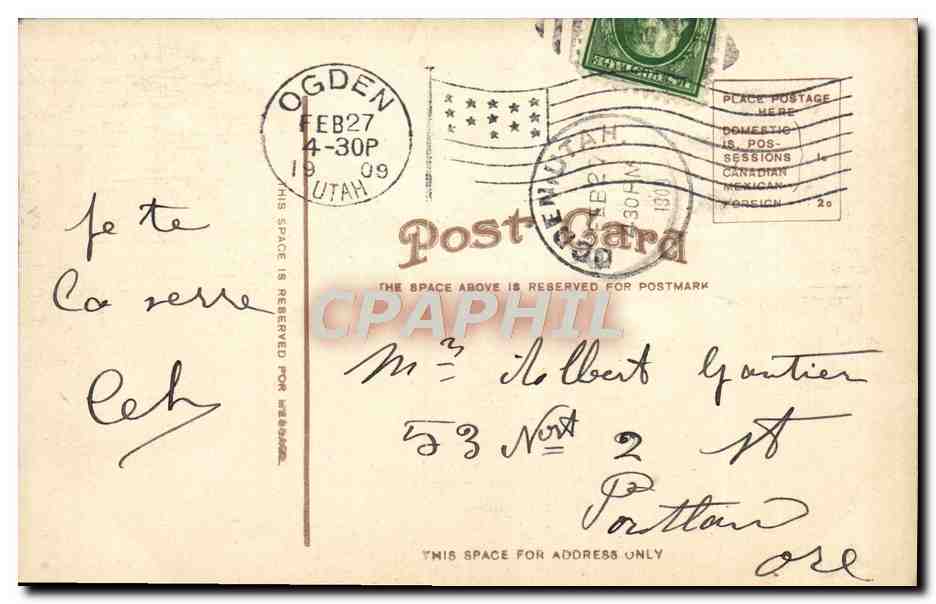 OGDEN
FEB 27
4-30P
19 09
UTAH
OGDEN UTAH
FEB 27
4 30 PM
1909
PLACE POSTAGE
HERE
DOMESTIC
IS. POS-
SESSIONS
CANADIAN
MEXICAN
1c
FOREIGN 2c
Post Card
THE SPACE ABOVE IS RESERVED FOR POSTMARK
THIS SPACE IS RESERVED FOR MESSAGE
je te
la serre
CPAPHIL
Mr Albert Gautier
53 Nort 2 st
Portlan
ore
THIS SPACE FOR ADDRESS ONLY